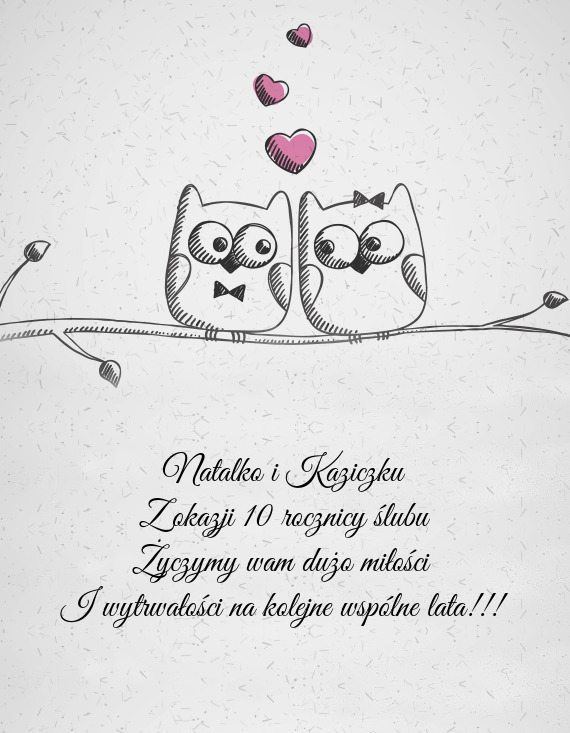 Natalko i Kaziczku
Zokazji 10 rocznicy ślubu
Życzymy wam dużo miłości
I wytrwałości na kolejne wspólne lata!!!